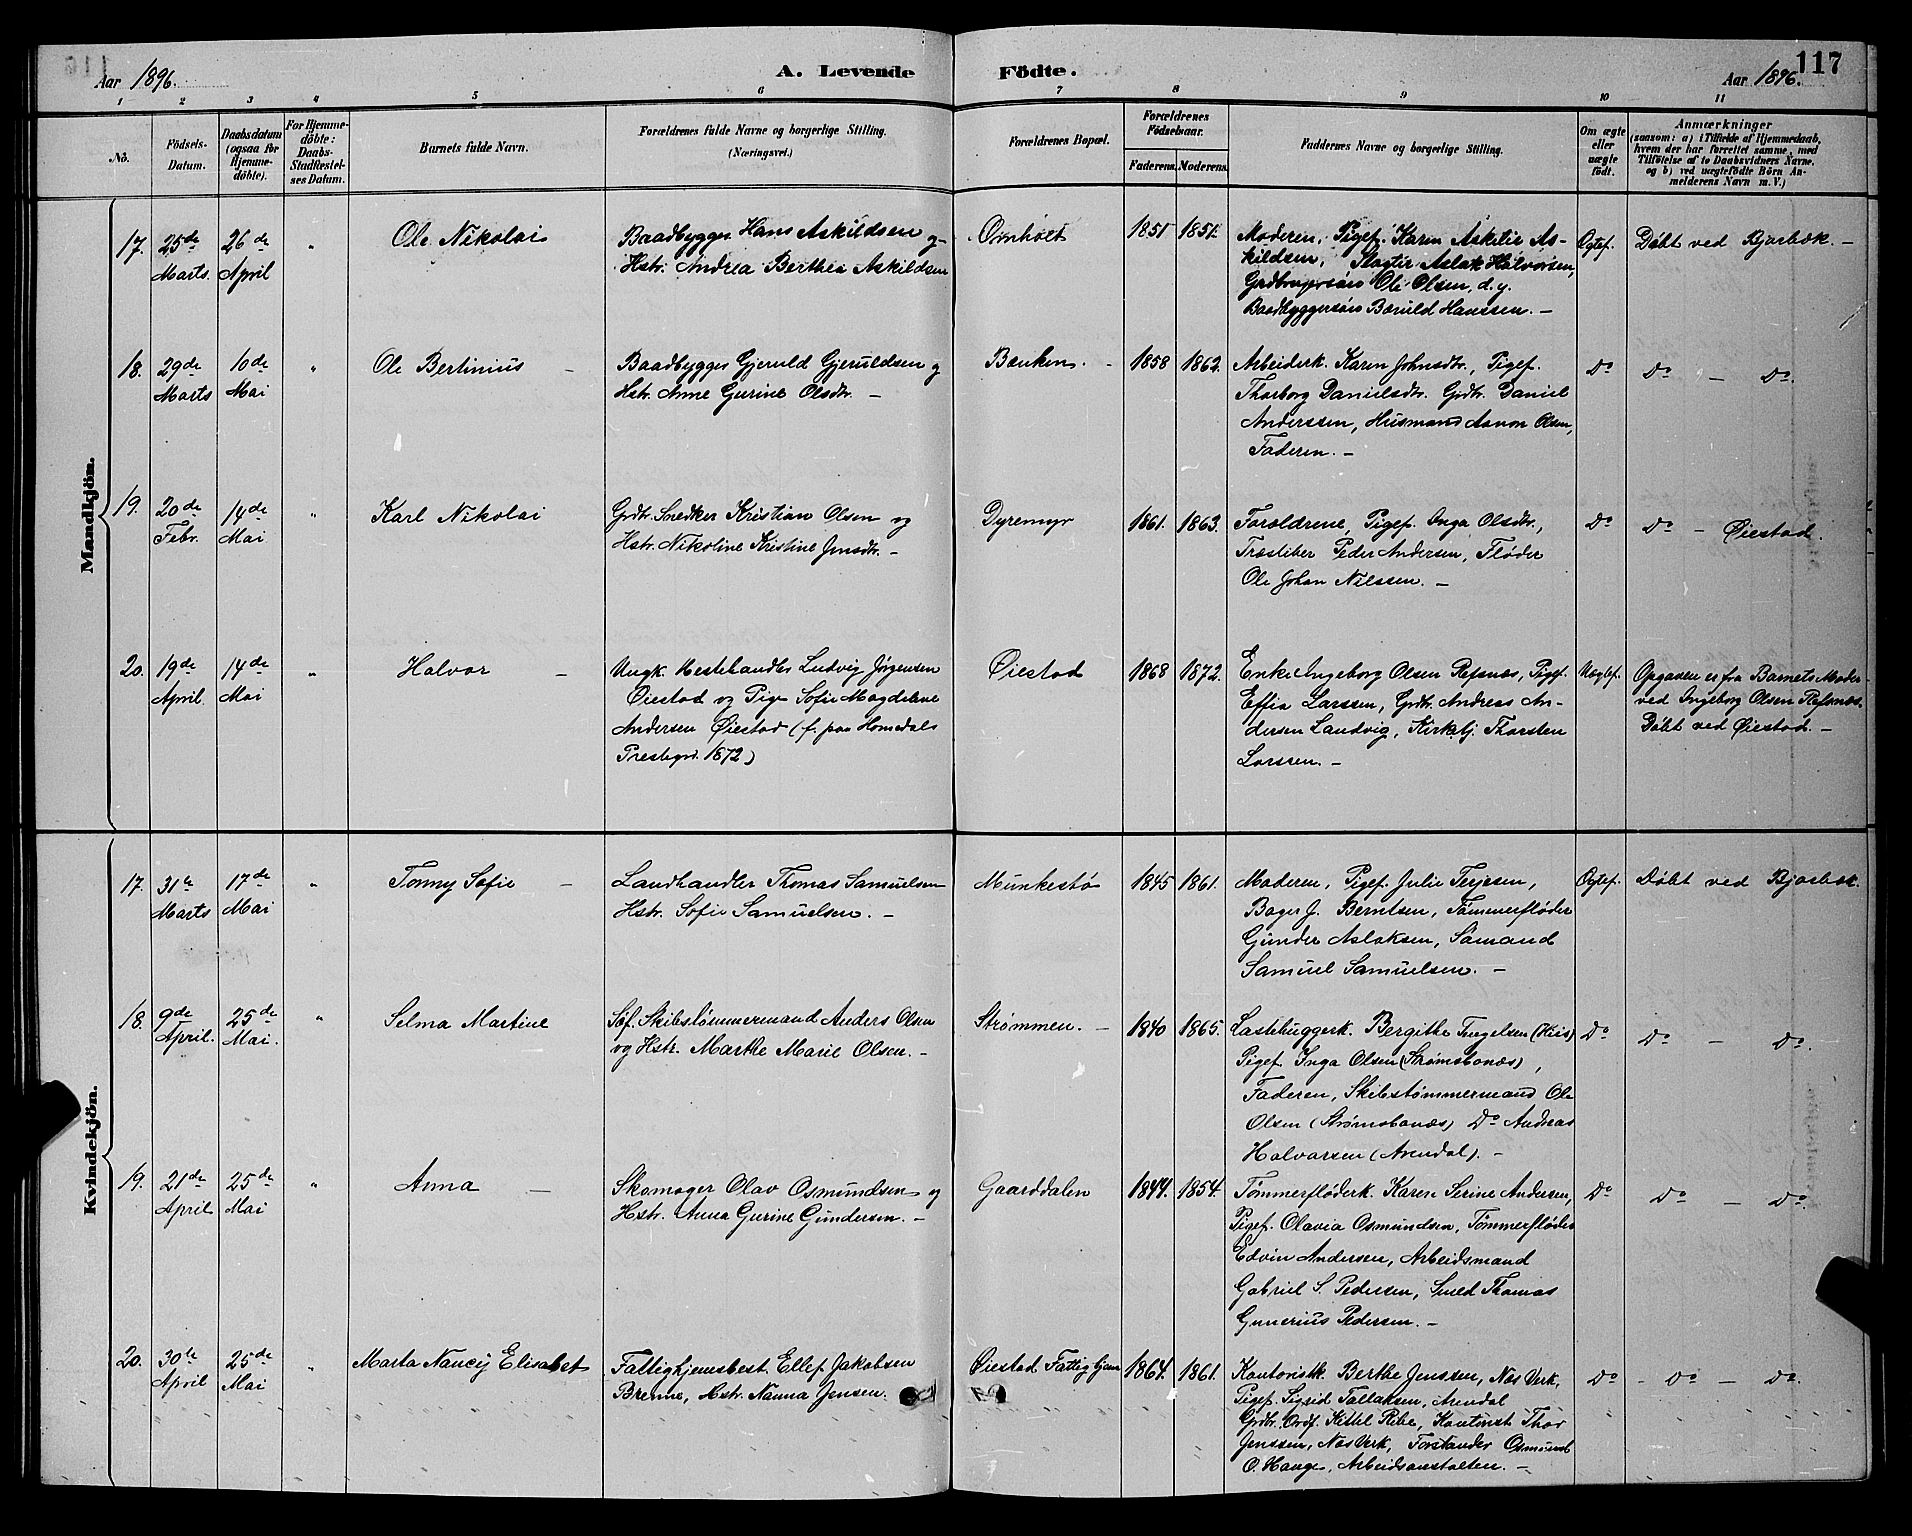 Aar 1896.
A. Levende
Födte.
Aar 1896.
117
1 2 3 4 5 6 7 8 9 10 11
No.
Födsels-Datum.
Daabsdatum (ogsaa for Hjemme-döbte).
For Hjemme-döbte: Daabs-Stadfæstel-ses Datum.
Barnets fulde Navn.
Forældrenes fulde Navne og borgerlige Stilling.
(Næringsvei.)
Forældrenes Bopæl.
Forældrenes Födselsaar.
Faderens. Moderens.
Faddernes Navne og borgerlige Stilling.
Om ægte eller uægte födt.
Anmærkninger
(saasom: a) i Tilfælde af Hjemmedaab,
hvem der har forrettet samme, med
Tilföielse af to Daabsvidners Navne.
og b) ved uægtefödte Börn An-
melderens Navn m. V.)
Mandkjön.
17. 25de Marts. 26de April " Ole Nikolai
Baadbygger Hans Askildsen og
Hstr. Andrea Berthea Askildsen
Ørnholt 1851 1851.
Moderen, Pigef. Karen Asketie As-
kildsen, Slagter Aslak Halvorsen,
Grdbrugersøn Ole Olsen, d. y.
Baadbyggersøn Bæruld Hanssen. –
Ægtef. Døbt ved Bjorbæk. –
18. 29de Marts 10de Mai " Ole Bertinius –
Baadbygger Gjeruld Gjeruldsen og
Hstr. Anne Gurine Olsdtr. –
Bænken. – 1858 1862.
Arbeiderk. Karen Johnsdtr., Pigef.
Thorborg Danielsdtr. Grdbr. Daniel
Anderssen, Husmand Aanon Olsen,
Faderen. –
Do Do – Do.
19. 20de Febr. 14de Mai " Karl Nikolai
Grdbr. Snedker Kristian Olsen og
Hstr. Nikoline Kristine Jensdtr. –
Dyremyr 1861. 1863.
Forældrene, Pigef. Inga Olsdtr.,
Træsliber Peder Andersen, Fløder
Ole Johan Nilssen. –
Do Do – Øiestad.
20. 19de April 14de Mai " Halvor –
Ungk. Hestehandler Ludvig Jørgensen
Øiestad og Pige Sofie Magdelene
Andersen Øiestad (f. paa Homedals
Prestegd. 1872)
Øiestad 1868 1872.
Enke Ingeborg Olsen Refsnæs, Pigef.
Effia Larssen, Grdbr. Andreas An-
dersen Landvig, Kirketj. Thorsten
Larssen. –
Uægtef. Opgaven er fra Barnets Moder
ved Ingeborg Olsen Refsnæs.
Døbt ved Øiestad. –
Kvindekjön.
17. 31te Marts 17de Mai " Tonny Sofie –
Landhandler Thomas Samuelsen
Hstr. Sofie Samuelsen. –
Munkestø 1845 1861.
Moderen, Pigef. Julie Terjesen,
Bager J. Berntsen, Tømmerfløder
Gunder Aslaksen, Sømand
Samuel Samuelsen. –
Ægtef. Døbt ved Bjorbæk.
18. 9de April. 25de Mai. " Selma Martine
Søf. Skibstømmermand Anders Olsen
og Hstr. Marthe Marie Olsen. –
Strømmen. – 1840 1865.
Lastehuggerk. Bergithe Tengelsen (His)
Pigef. Inga Olsen (Strømsbonæs),
Faderen, Skibstømmermand Ole
Olsen (Strømsbonæs) Do Andreas
Halvorsen (Arendal). –
Do Do – Do.
19. 21de April 25de Mai " Anna –
Skomager Olav Osmundsen og
Hstr. Anna Gurine Gundersen. –
Gaarddalen 1844. 1854.
Tømmerfløderk. Karen Serine Andersen,
Pigef. Olavia Osmundsen, Tømmerfløder
Edvin Andersen, Arbeidsmand
Gabriel S. Pedersen, Smed Thomas
Gunerius Pedersen. –
Do Do – Do.
20. 30te April 25de Mai " Marta Nancy Elisabet
Fattighjemsbest. Ellef Jakobsen
Brenne, Hstr. Nanna Jensen.
Øiestad Fattighjem 1864. 1861.
Kontoristk. Berthe Jenssen, Næs Verk,
Pigef. Sigrid Tallaksen, Arendal
Grdbr. Ordf. Kittil Ribe, Kontorist Thor
Jenssen, Næs Verk, Forstander Osmund
O. Hauge, Arbeidsanstalten. –
Do – Do – Do.